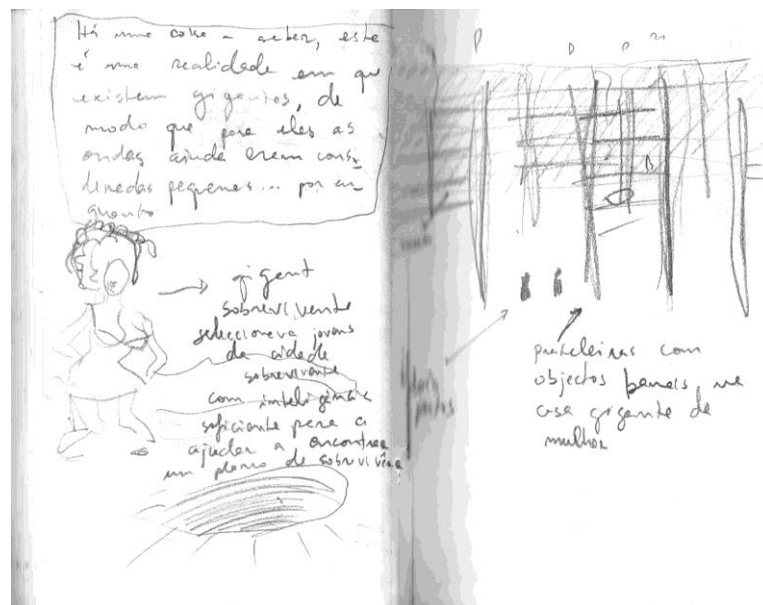 Há uma coisa a saber, este
é uma realidade em que
existem gigantes, de
modo que para eles as
ondas ainda eram consi-
deradas pequenas... por en
quanto
gigant
sobrevivente
seleccionava jovens
da cidade
sobrevivente
com inteligência
suficiente para a
ajudar a encontrar
um plano de sobrevivência
prateleiras com
objectos banais, na
casa gigante de
mulher